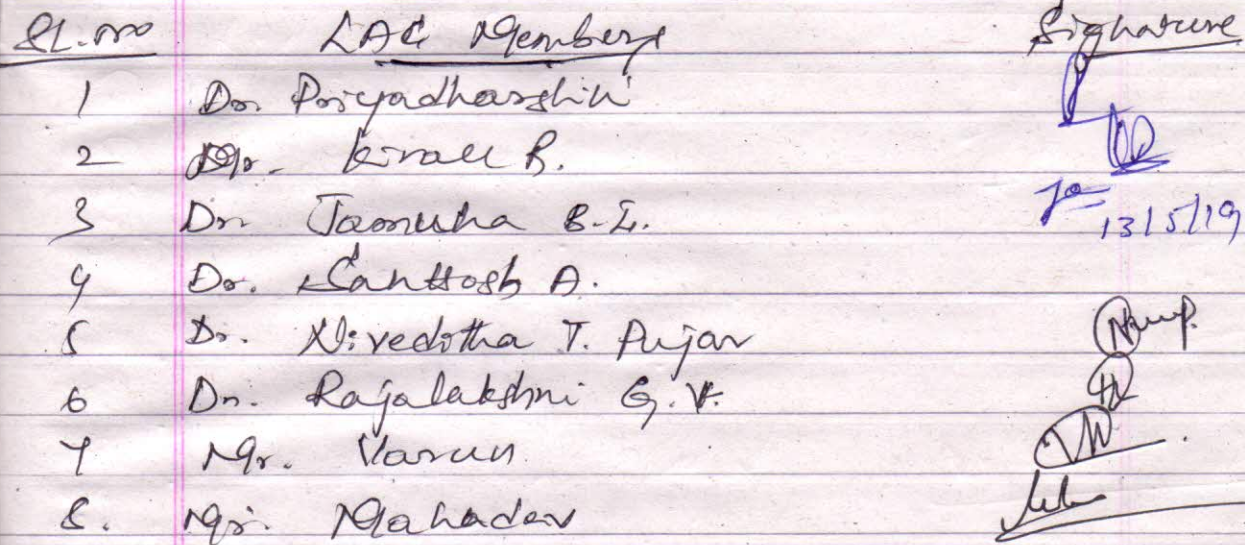 SL.no LAC Members Signature
1 Dr. Priyadharshini
2 Mr. Kiran R.
3 Dr. Jamuna B.L. 13/5/19
4 Dr. Santtosh A.
5 Dr. Niveditha T. Pujar
6 Dr. Rajalakshmi G.V.
7 Mr. Varun
8. Mr. Mahadev